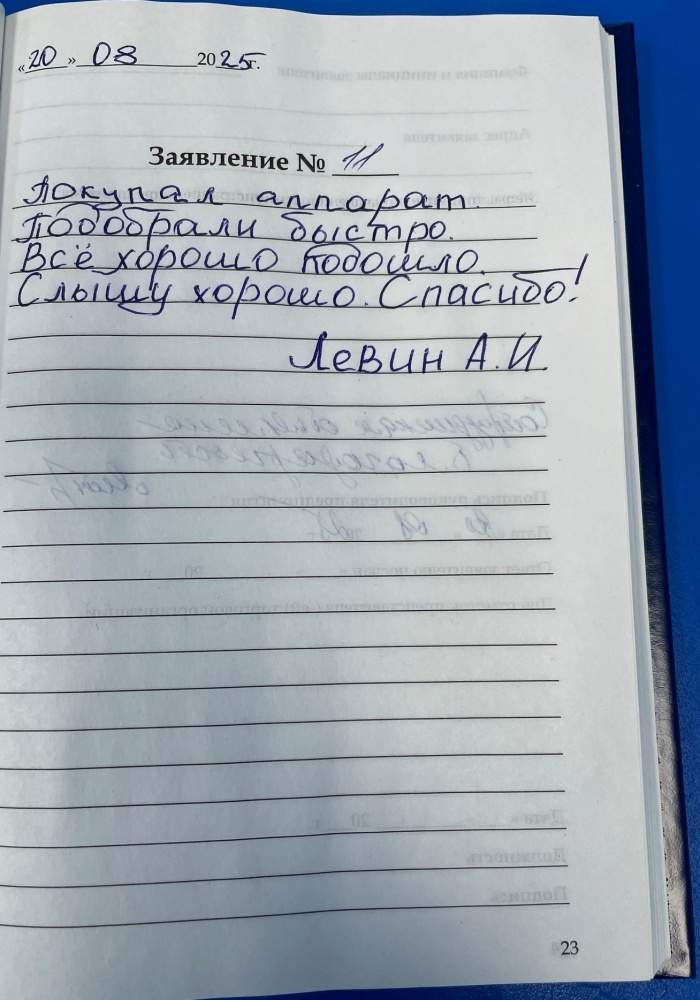 «20» 08 2025г.
Заявление № 11
Покупал аппарат.
Подобрали быстро.
Всё хорошо подошло.
Слышу хорошо. Спасибо!
Левин А.И.
23